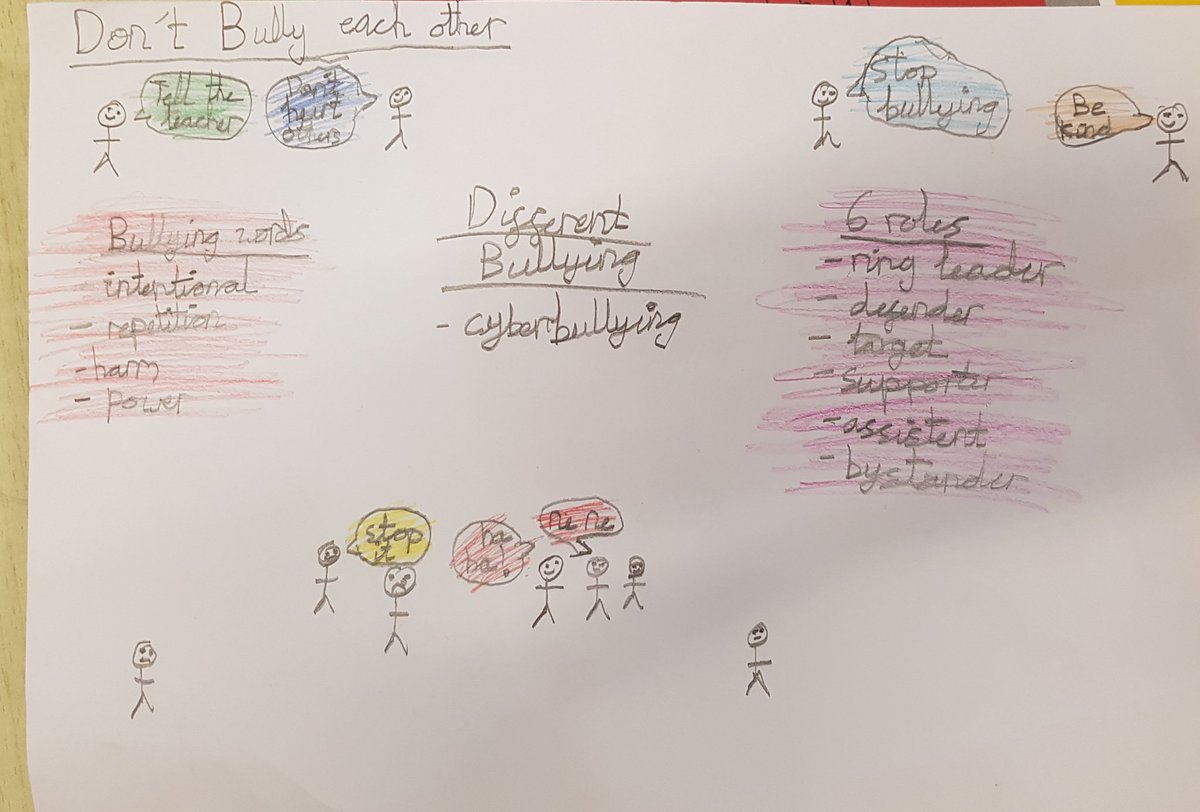 Don't Bully each other
Tell the
teacher
Don't
hurt
others
Stop
bullying
Be
kind
Bullying words
- intentional
- repetition
- harm
- power
Different
Bullying
- cyberbullying
6 roles
- ring leader
- defender
- target
- supporter
- assistent
- bystander
stop
it
ha
ha!